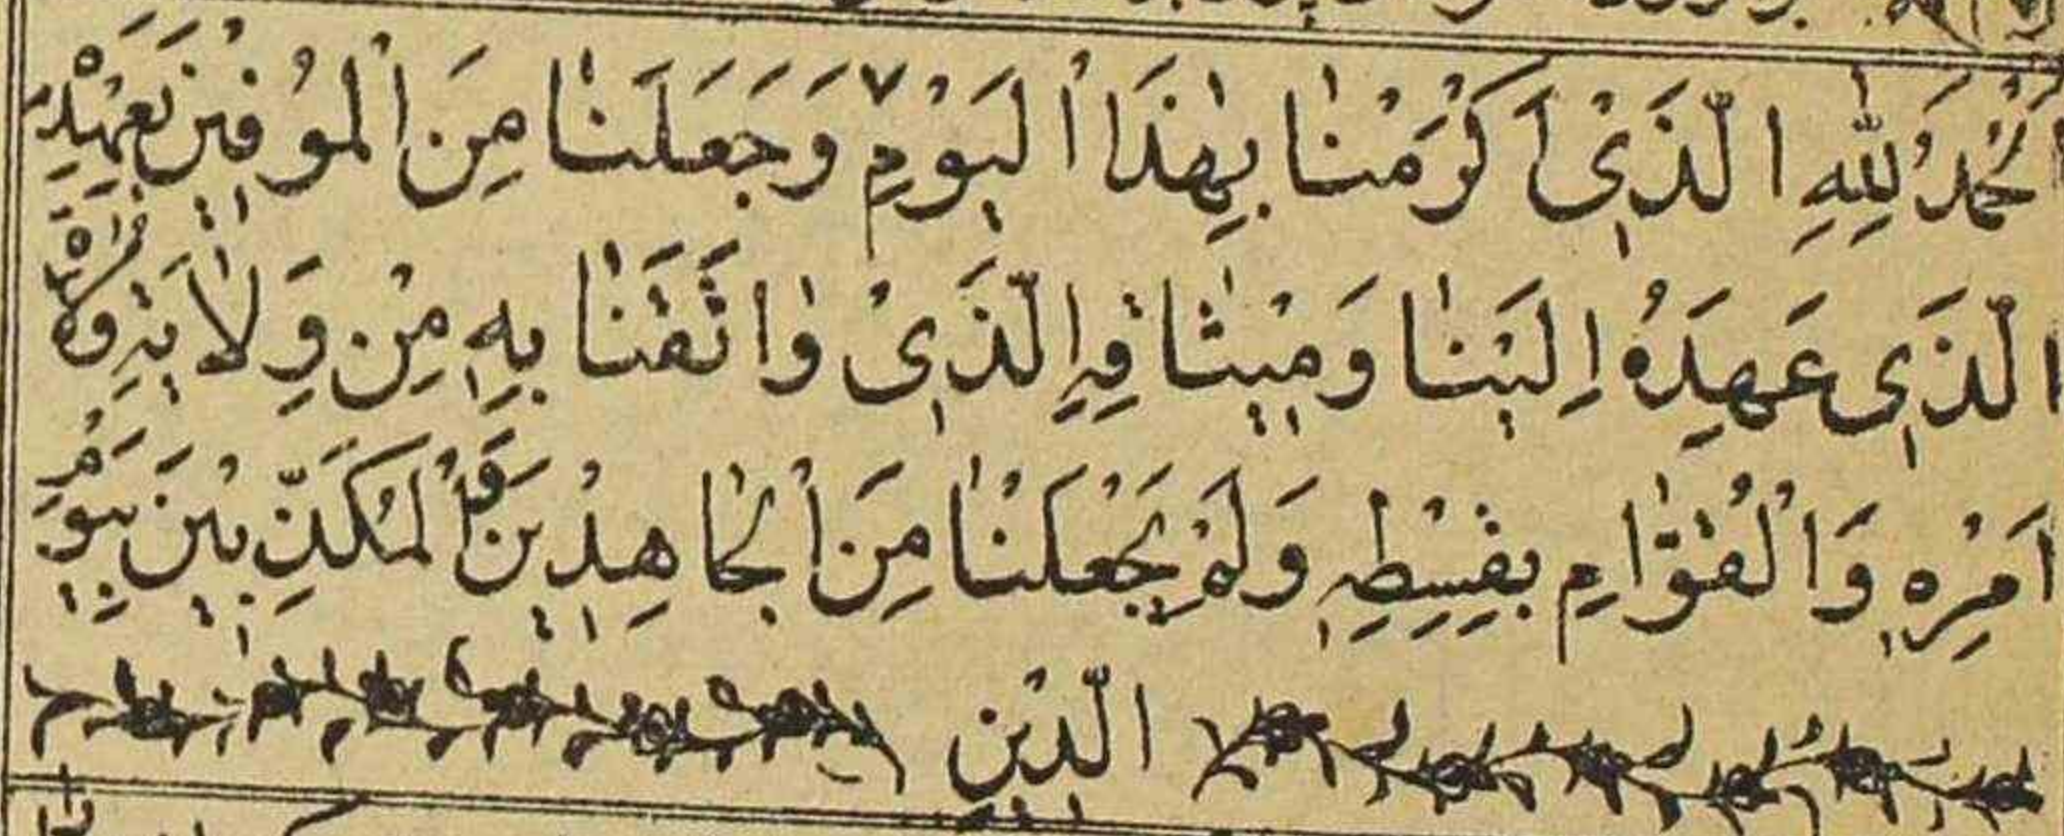 اَلْحَمْدُ لِلّٰهِ الَّذَىْ اَكْرَمَنٰا بِهٰذَا الْيَوْمِ وَجَعَلَنٰا مِنَ الْمُوفيٖنَ بِعَهْدِهِ
الَّذَى عَهِدَهُ اِلَيْنٰا وَمٖيْثٰاقِهِ الَّذَىْ وٰاثَقَنٰا بِهٖ مِنْ وِلٰايَةِ وُلٰاةِ
اَمْرِهٖ وَالْقُوّٰامِ بِقِسْطِهٖ وَلَمْ يَجْعَلْنٰا مِنَ الْجٰاحِدٖيْنَ وَالْمُكَذِّبٖيْنَ بِيَوْمِ
الدّٖيْنِ